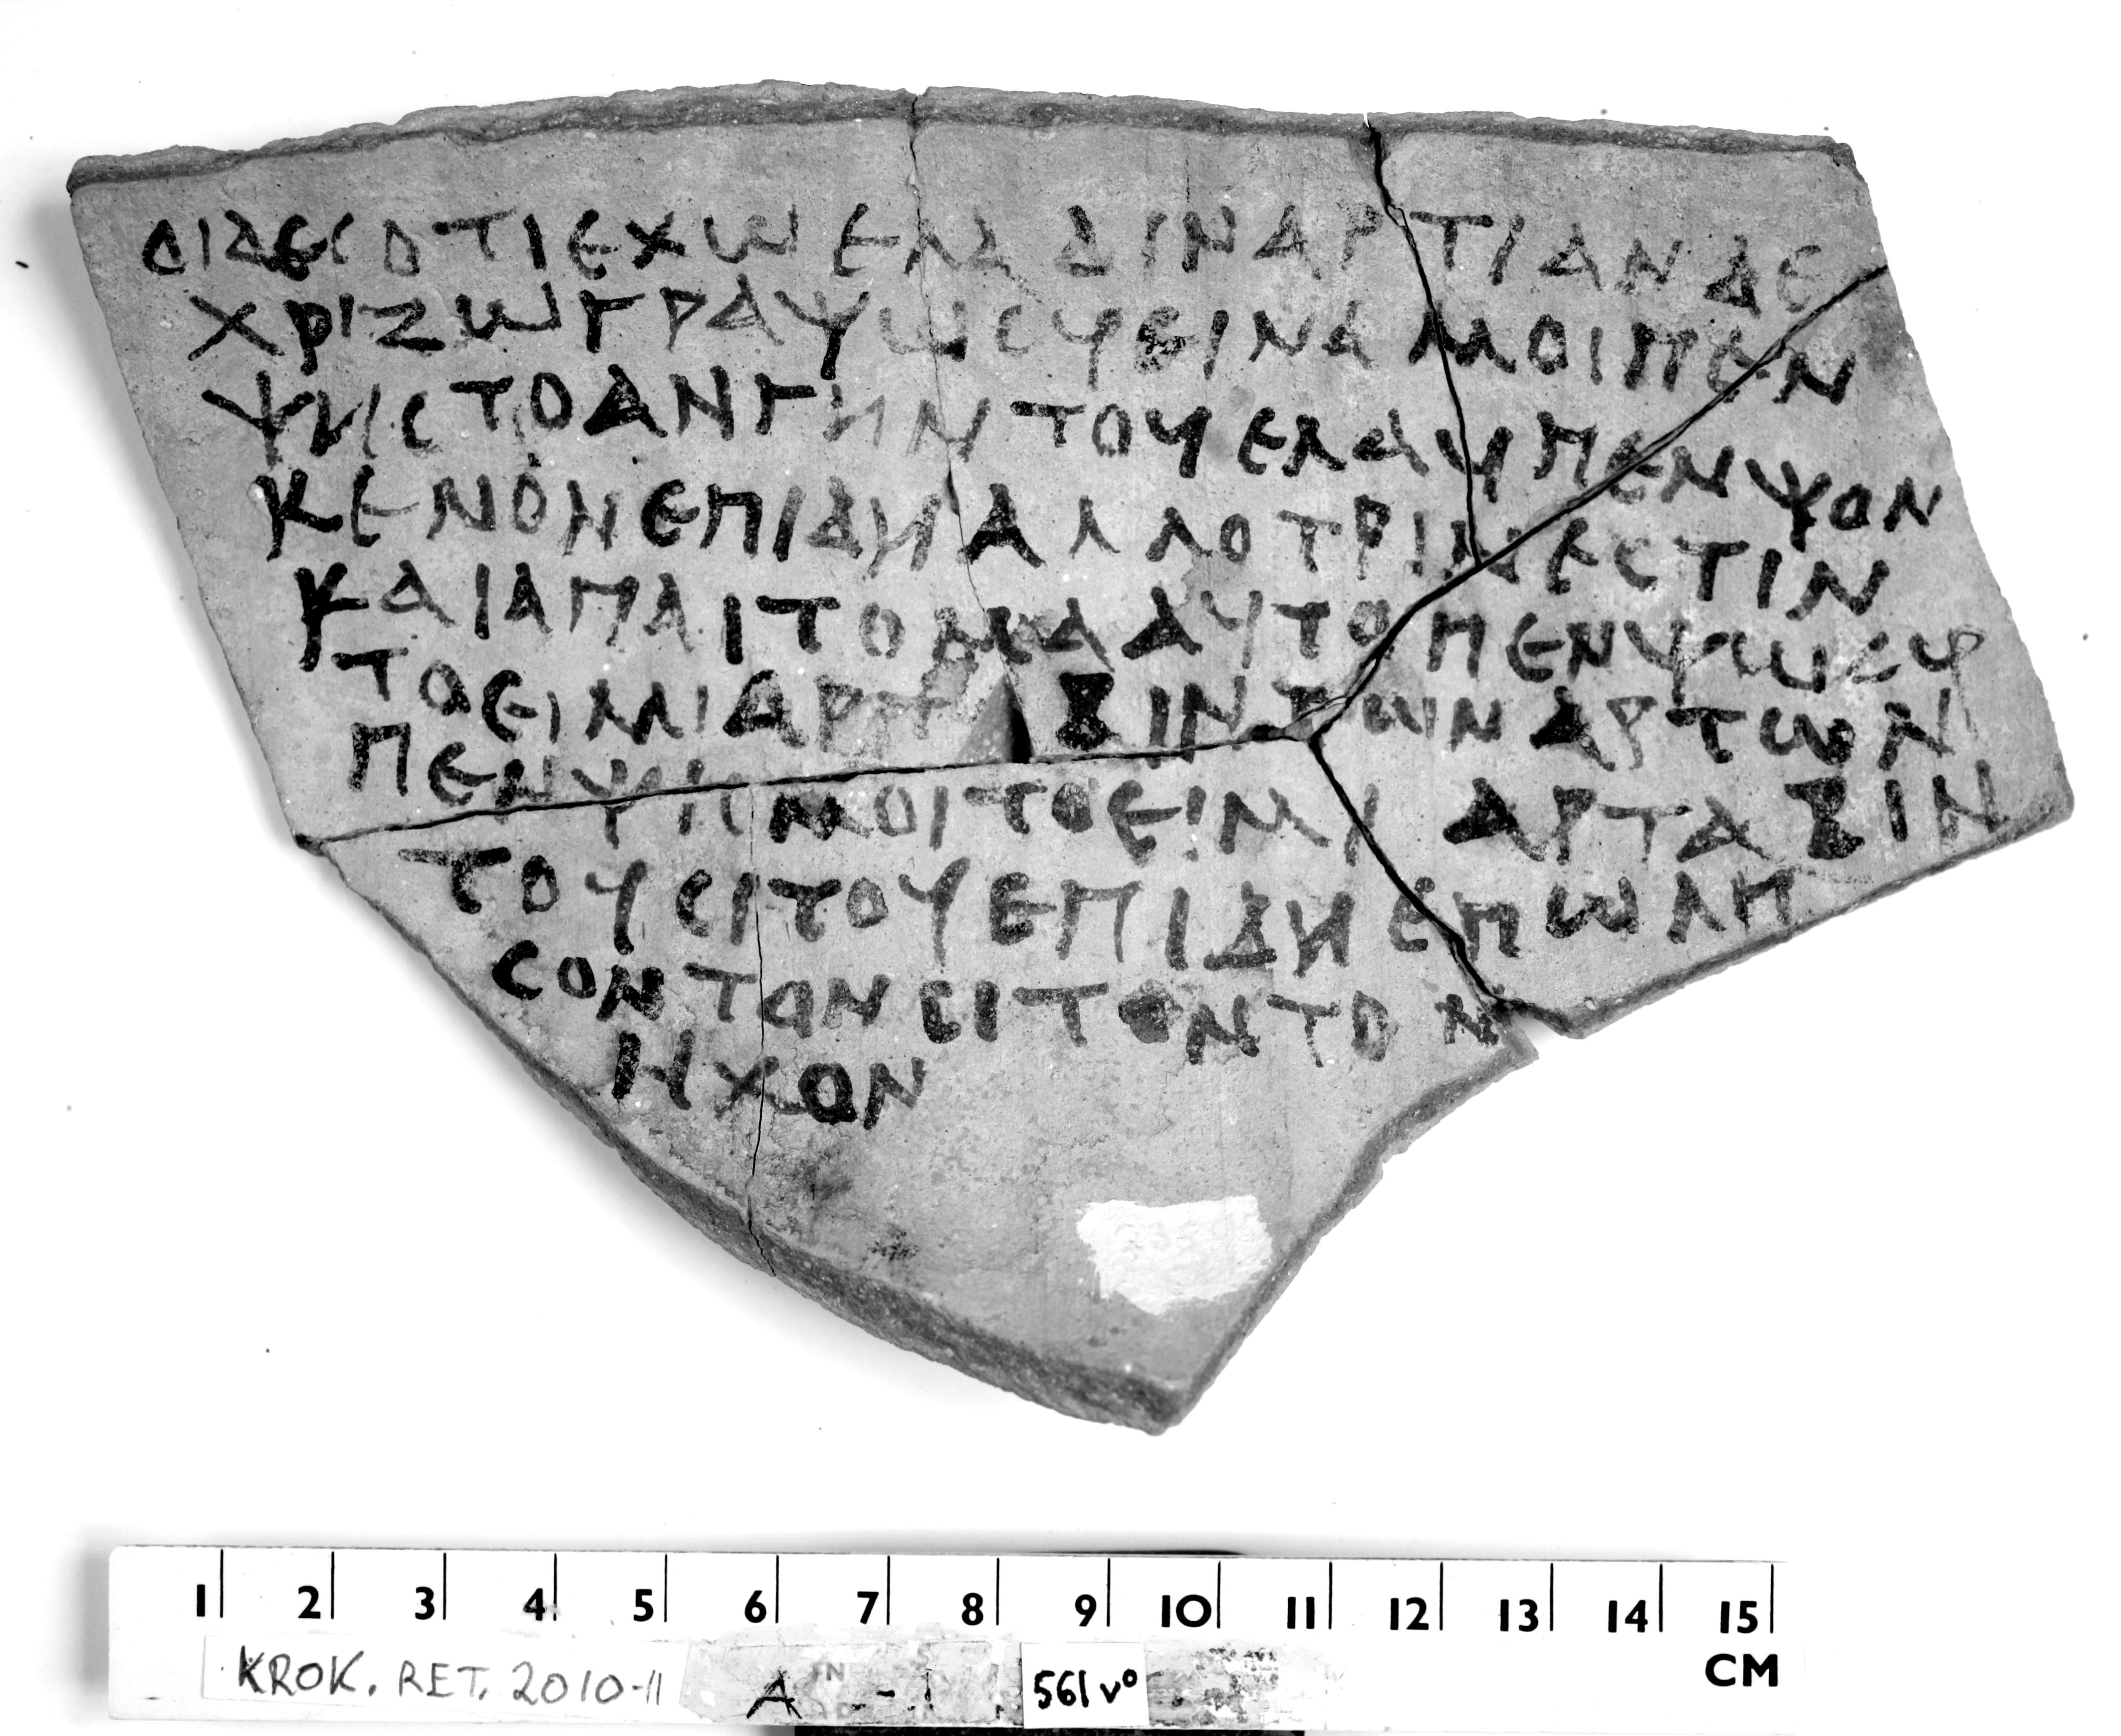 ϹΙΔΕϹΟΤΙΕΧΩΕΛΑΔΙΝΑΡΤΙΑΝΔΕ
ΧΡΙΖΩΓΡΑΨΩϹΥΕΙΝΑΜΟΙΠΕΝ
ΨΗϹΤΟΑΝΓΗΝΤΟΥΕΛΑΥΠΕΝΨΟΝ
ΚΕΝΟΝΕΠΙΔΗΑΛΛΟΤΡΙΝΕϹΤΙΝ
ΚΑΙΑΠΑΙΤΟΜΑΑΥΤΟΠΕΝΨΩϹΥ
ΤΟΕΙΜΙΑΡΤΑΒΙΝΤΩΝΑΡΤΩΝ
ΠΕΝΨΙΝΜΟΙΤΟΕΙΜΙΑΡΤΑΒΙΝ
ΤΟΥϹΙΤΟΥΕΠΙΔΗΕΠΩΛΗ
ϹΟΝΤΟΝϹΙΤΟΝΤΟΝ
ΗΧΟΝ
1 2 3 4 5 6 7 8 9 10 11 12 13 14 15
CM
KROK. RET. 2010-11 561 vº